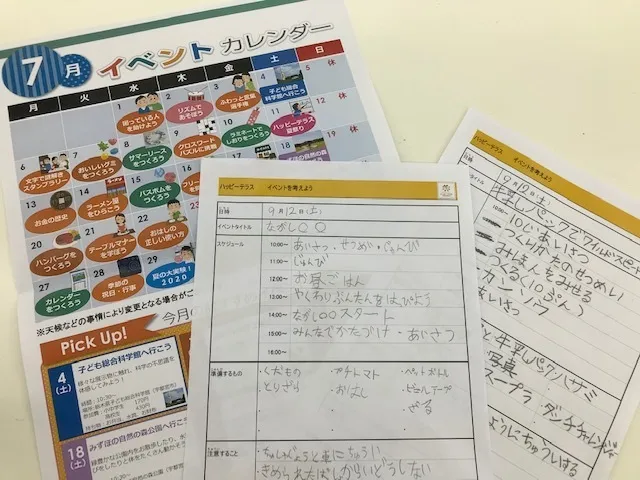 7月 イベントカレンダー
月 火 水 木 金 土 日
1 困っている人を助けよう
2 リズムであそぼう
3 ふわっと言葉選手権
4 子ども総合科学館へ行こう
5 休
6 文字で謎解きスタンプラリー
7 おいしいグミをつくろう
8 サマーリースをつくろう
9 クロスワードパズルに挑戦
10 ラミネートでしおりをつくろう
11 ハッピーテラス夏祭り
12 休
13 お金の歴史
14 ラーメン屋をひらこう
15 バスボムをつくろう
16
17
18
19 休
20 ハンバーグをつくろう
21 テーブルマナーを学ぼう
22 おはしの正しい使い方
27 カレンダーをつくろう
28 季節の祝日・行事
29 夏の大実験!2020
※天候などの事情により変更となる場合がご
Pick Up!
今月の
4(土)
子ども総合科学館へ行こう
様々な展示物に触れ、科学の不思議を
体感してみよう!
18(土)
みずほの自然の森公園へ行こう
ハッピーテラス イベントを考えよう
日時 9月12日(土)
イベントタイトル ながし○○
スケジュール
10:00~ あいさつ・せつめい・じゅんび
11:00~ じゅんび
12:00~ お昼ごはん
13:00~ やくわりぶんたんをはっぴょう
14:00~ ながし○○スタート
15:00~ みんなでかたづけ・あいさつ
16:00~
準備するもの
・くだもの ・プチトマト ・ペットボトル
・とりざら ・おはし ・ビニールテープ
・ざる
注意すること
きめられたばしからいどうしない
ハッピーテラス イベントを考えよう
9月12日(土)
牛乳パックでワイルドスピ
10じあいさつ
つくりかたのせつめい
みほんをみせる
つくる(10ぷん)
カンソウ
あいさつ
牛乳パック ハサミ
写真
スープラ ダンチャレンジャー
ようにちゅういする